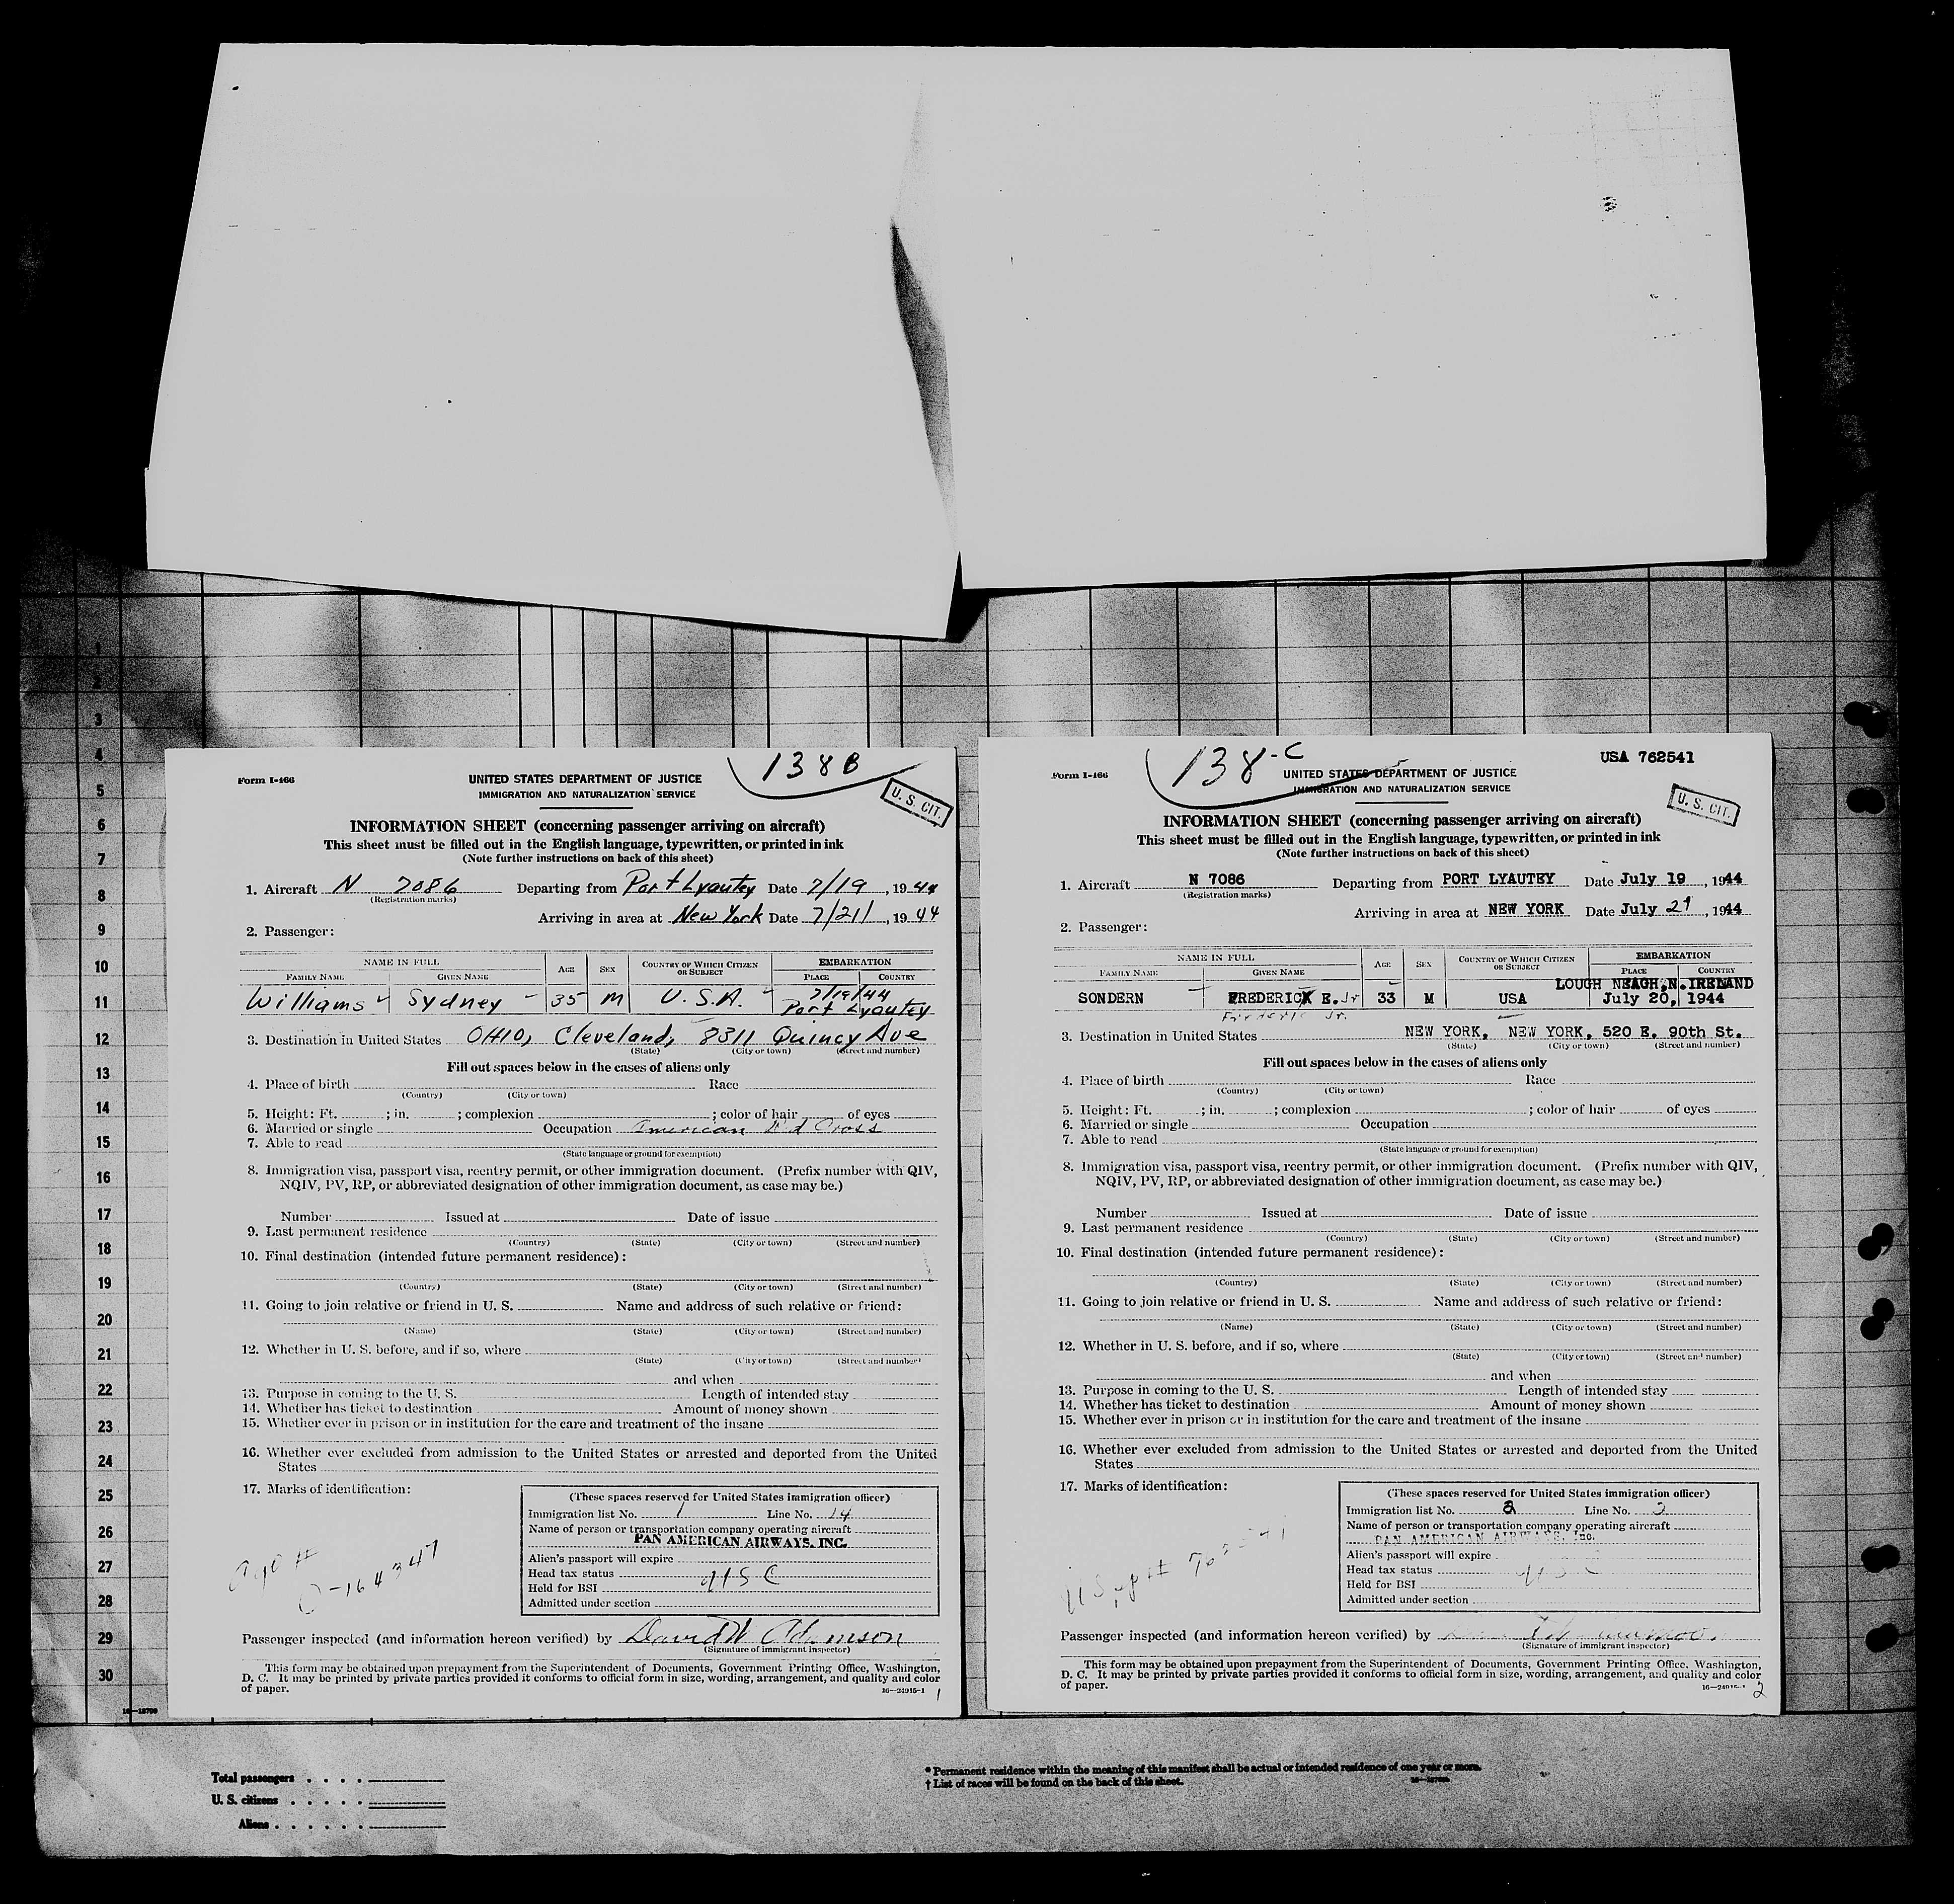 138 B
Form I-466
UNITED STATES DEPARTMENT OF JUSTICE
IMMIGRATION AND NATURALIZATION SERVICE
U. S. CIT.
INFORMATION SHEET (concerning passenger arriving on aircraft)
This sheet must be filled out in the English language, typewritten, or printed in ink
(Note further instructions on back of this sheet)
1. Aircraft N 7086 Departing from Port Lyautey Date 7/19, 1944
(Registration marks)
Arriving in area at New York Date 7/21/, 1944
2. Passenger:
NAME IN FULL AGE SEX COUNTRY OF WHICH CITIZEN OR SUBJECT EMBARKATION
FAMILY NAME GIVEN NAME PLACE COUNTRY
Williams Sydney 35 M U.S.A. 7/19/44
Port Lyautey
3. Destination in United States OHIO, Cleveland, 8311 Quincy Ave
(State) (City or town) (Street and number)
Fill out spaces below in the cases of aliens only
4. Place of birth Race
(Country) (City or town)
5. Height: Ft. ; in. ; complexion ; color of hair of eyes
6. Married or single Occupation American Red Cross
7. Able to read
(State language or ground for exemption)
8. Immigration visa, passport visa, reentry permit, or other immigration document. (Prefix number with QIV,
NQIV, PV, RP, or abbreviated designation of other immigration document, as case may be.)
Number Issued at Date of issue
9. Last permanent residence
(Country) (State) (City or town) (Street and number)
10. Final destination (intended future permanent residence):
(Country) (State) (City or town) (Street and number)
11. Going to join relative or friend in U. S. Name and address of such relative or friend:
(Name) (State) (City or town) (Street and number)
12. Whether in U. S. before, and if so, where
(State) (City or town) (Street and number)
and when
13. Purpose in coming to the U. S. Length of intended stay
14. Whether has ticket to destination Amount of money shown
15. Whether ever in prison or in institution for the care and treatment of the insane
16. Whether ever excluded from admission to the United States or arrested and deported from the United
States
17. Marks of identification:
(These spaces reserved for United States immigration officer)
Immigration list No. 1 Line No. 14
Name of person or transportation company operating aircraft
PAN AMERICAN AIRWAYS, INC.
Alien's passport will expire
Head tax status USC
Held for BSI
Admitted under section
ago #
O-164347
Passenger inspected (and information hereon verified) by David W Adamson
(Signature of immigrant inspector)
This form may be obtained upon prepayment from the Superintendent of Documents, Government Printing Office, Washington,
D. C. It may be printed by private parties provided it conforms to official form in size, wording, arrangement, and quality and color
of paper.
16—24915-1 1
138-C
USA 762541
Form I-466
UNITED STATES DEPARTMENT OF JUSTICE
IMMIGRATION AND NATURALIZATION SERVICE
U. S. CIT.
INFORMATION SHEET (concerning passenger arriving on aircraft)
This sheet must be filled out in the English language, typewritten, or printed in ink
(Note further instructions on back of this sheet)
1. Aircraft N 7086 Departing from PORT LYAUTEY Date July 19, 1944
(Registration marks)
Arriving in area at NEW YORK Date July 21, 1944
2. Passenger:
NAME IN FULL AGE SEX COUNTRY OF WHICH CITIZEN OR SUBJECT EMBARKATION
FAMILY NAME GIVEN NAME PLACE COUNTRY
LOUGH NEAGH, N. IRELAND
SONDERN FREDERICK E. Jr 33 M USA July 20, 1944
Frederic Jr.
3. Destination in United States NEW YORK, NEW YORK, 520 E. 90th St.
(State) (City or town) (Street and number)
Fill out spaces below in the cases of aliens only
4. Place of birth Race
(Country) (City or town)
5. Height: Ft. ; in. ; complexion ; color of hair of eyes
6. Married or single Occupation
7. Able to read
(State language or ground for exemption)
8. Immigration visa, passport visa, reentry permit, or other immigration document. (Prefix number with QIV,
NQIV, PV, RP, or abbreviated designation of other immigration document, as case may be.)
Number Issued at Date of issue
9. Last permanent residence
(Country) (State) (City or town) (Street and number)
10. Final destination (intended future permanent residence):
(Country) (State) (City or town) (Street and number)
11. Going to join relative or friend in U. S. Name and address of such relative or friend:
(Name) (State) (City or town) (Street and number)
12. Whether in U. S. before, and if so, where
(State) (City or town) (Street and number)
and when
13. Purpose in coming to the U. S. Length of intended stay
14. Whether has ticket to destination Amount of money shown
15. Whether ever in prison or in institution for the care and treatment of the insane
16. Whether ever excluded from admission to the United States or arrested and deported from the United
States
17. Marks of identification:
(These spaces reserved for United States immigration officer)
Immigration list No. 2 Line No. 2
Name of person or transportation company operating aircraft
PAN AMERICAN AIRWAYS, Inc.
Alien's passport will expire
Head tax status USC
Held for BSI
Admitted under section
Passenger inspected (and information hereon verified) by
(Signature of immigrant inspector)
This form may be obtained upon prepayment from the Superintendent of Documents, Government Printing Office, Washington,
D. C. It may be printed by private parties provided it conforms to official form in size, wording, arrangement, and quality and color
of paper.
16—24915-1 2
1
2
3
4
5
6
7
8
9
10
11
12
13
14
15
16
17
18
19
20
21
22
23
24
25
26
27
28
29
30
Total passengers
U. S. citizens
Aliens
* Permanent residence within the meaning of this manifest shall be actual or intended residence of one year or more.
† List of races will be found on the back of this sheet.